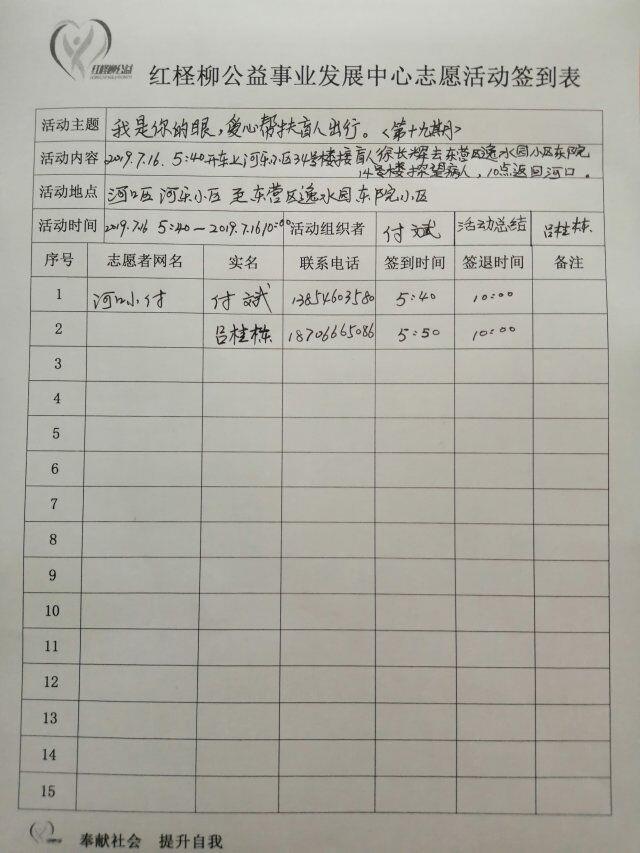 红柽柳公益
红柽柳公益事业发展中心志愿活动签到表
活动主题 我是你的眼，爱心帮扶盲人出行。<第十九期>
活动内容 2019.7.16. 5:40开车上河乐小区34号楼接盲人徐长辉去东营区逸水园小区东院
14号楼探望病人，10点返回河口。
活动地点 河口区 河乐小区 至 东营区逸水园东院小区
活动时间 2019.7.16 5:40—2019.7.16 10:00 活动组织者 付斌 活动总结 吕桂栋
序号 志愿者网名 实名 联系电话 签到时间 签退时间 备注
1 河口小付 付斌 13854603580 5:40 10:00
2 吕桂栋 18706665086 5:50 10:00
3
4
5
6
7
8
9
10
11
12
13
14
15
奉献社会 提升自我